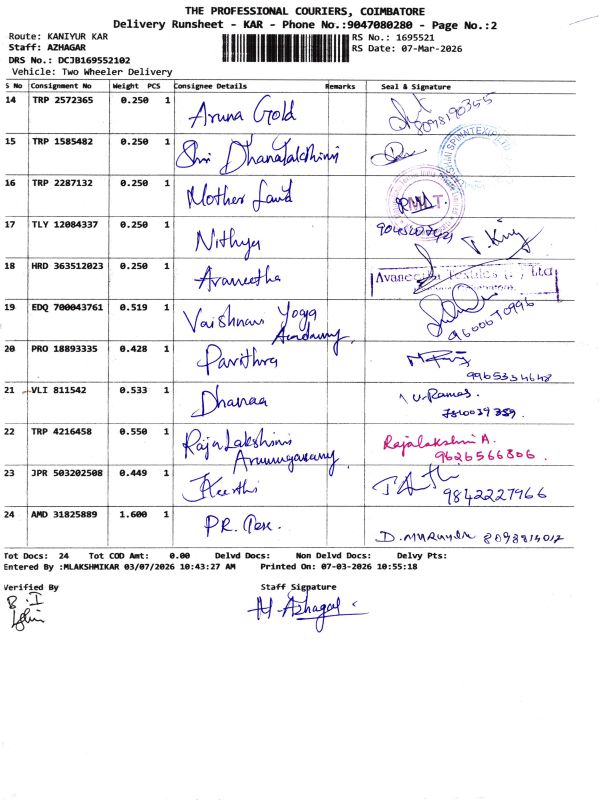 THE PROFESSIONAL COURIERS, COIMBATORE
Delivery Runsheet - KAR - Phone No.:9047080280 - Page No.:2
Route: KANIYUR KAR
RS No.: 1695521
Staff: AZHAGAR
RS Date: 07-Mar-2026
DRS No.: DCJB169552102
Vehicle: Two Wheeler Delivery
S No Consignment No Weight PCS Consignee Details Remarks Seal & Signature
14 TRP 2572365 0.250 1 Aruna Gold 8098190355
15 TRP 1585482 0.250 1 Shri Dhanalakshimi
16 TRP 2287132 0.250 1 Mother Land
17 TLY 12084337 0.250 1 Nithya
18 HRD 363512023 0.250 1 Avaneetha
19 EDQ 700043761 0.519 1 Vaishnavi Yoga Academy 9600670996
20 PRO 18893335 0.428 1 Pavithra 9965334648
21 VLI 811542 0.533 1 Dhanaa
22 TRP 4216458 0.550 1 Raja Lakshimi Arumugasamy Rajalakshmi A. 9626566806.
23 JPR 503202508 0.449 1 Keerthi 9842227966
24 AMD 31825889 1.600 1 PR.
Tot Docs: 24 Tot COD Amt: 0.00 Delvd Docs: Non Delvd Docs: Delvy Pts:
Entered By :MLAKSHMIKAR 03/07/2026 10:43:27 AM Printed On: 07-03-2026 10:55:18
Verified By
Staff Signature
M. Azhagar